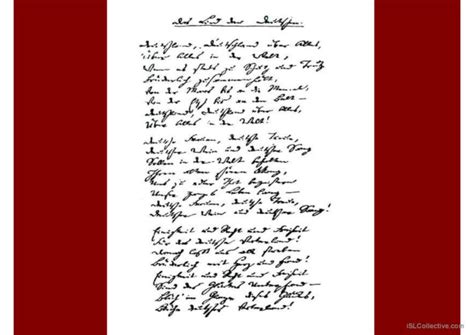 Das Lied der Deutschen.
Deutschland, Deutschland über Alles,
Über Alles in der Welt,
Wenn es stets zu Schutz und Trutze
Brüderlich zusammenhält,
Von der Maas bis an die Memel,
Von der Etsch bis an den Belt –
Deutschland, Deutschland über Alles,
Über Alles in der Welt!
Deutsche Frauen, deutsche Treue,
Deutscher Wein und deutscher Sang
Sollen in der Welt behalten
Ihren alten schönen Klang,
Uns zu edler That begeistern
Unser ganzes Leben lang –
Deutsche Frauen, deutsche Treue,
Deutscher Wein und deutscher Sang!
Einigkeit und Recht und Freiheit
Für das deutsche Vaterland!
Danach laßt uns alle streben
Brüderlich mit Herz und Hand!
Einigkeit und Recht und Freiheit
Sind des Glückes Unterpfand –
Blüh' im Glanze dieses Glückes,
Blühe deutsches Vaterland!
iSLCollective.com